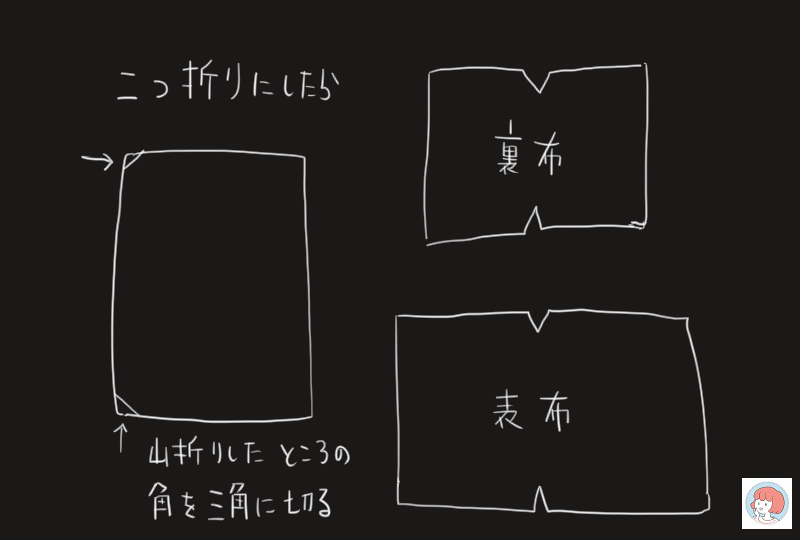 二つ折りにしたら
山折りしたところの
角を三角に切る
裏布
表布